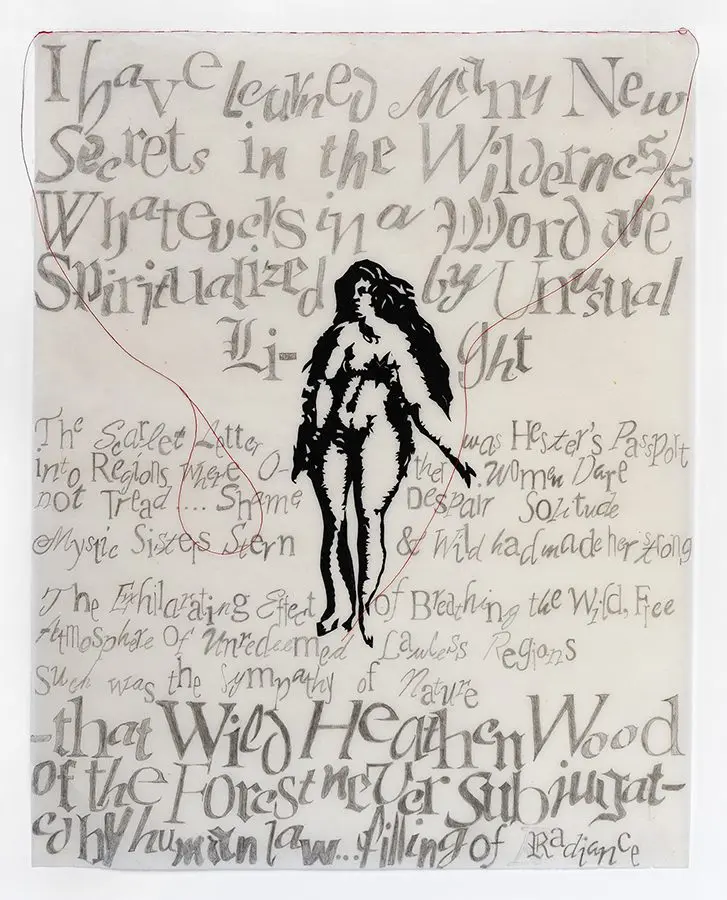 I have Learned Many New
Secrets in the Wilderness
Whatevers in a Word are
Spiritualized by Unusual
Li- ght
The Scarlet Letter was Hester's Passport
into Regions where O- ther Women Dare
not Tread .... Shame Despair Solitude
Mystic Sisters Stern & Wild had made her strong
The Exhilarating Effect of Breathing the Wild, Free
Atmosphere Of Unredeemed Lawless Regions
Such was the Sympathy of Nature
-that Wild Heathen Wood
of the Forest never Subjugat-
ed by human law... filling of Radiance